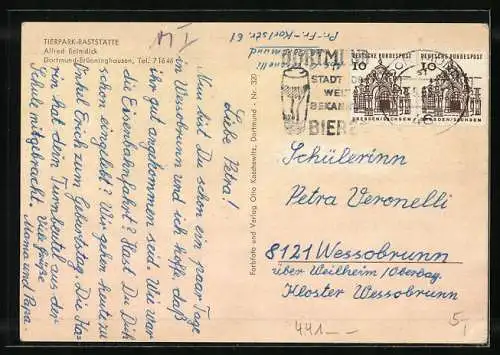 TIERPARK-RASTSTÄTTE
Alfred Beindick
Dortmund-Brünninghausen, Tel. 71646
Liebe Petra!
Nun bist Du schon ein paar Tage
in Wessobrunn und ich hoffe, daß
ihr gut angekommen seid. Wie war
die Eisenbahnfahrt? Hast Du Dich
schon eingelebt? Wir gehen heute zu
Onkel Erich zum Geburtstag. Die Ka-
rin hat dein Turnbeutel aus der
Schule mitgebracht. Viele Grüße
Mama und Papa.
Farbfoto und Verlag Otto Kaschewitz, Dortmund - Nr. 320
Pr.-Fr.-Karlstr. 61
DORTMUND
STADT
WELT
BEKAN
BIER
DEUTSCHE BUNDESPOST
10
DRESDEN/SACHSEN
DEUTSCHE BUNDESPOST
10
DRESDEN/SACHSEN
Schülerinn
Petra Veronelli
8121 Wessobrunn
über Weilheim/Oberbay.
Kloster Wessobrunn
441.--